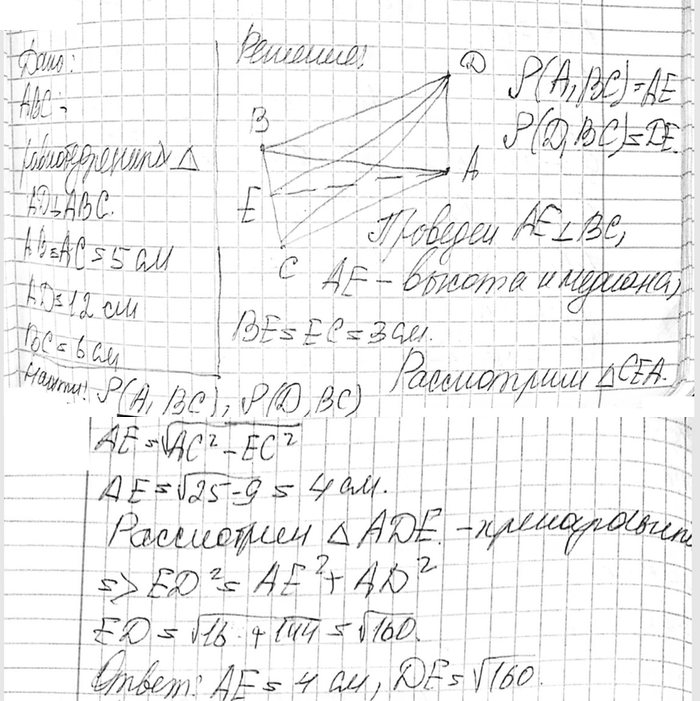 Дано:
ABC -
равнобедренный △
AD⊥ABC.
AB=AC=5 см
AD=12 см
BC=6 см
Найти: ρ(A, BC), ρ(D, BC)
Решение:
D
B
A
E
C
ρ(A, BC)=AE
ρ(D, BC)=DE.
Проведем AE⊥BC,
AE - высота и медиана,
BE=EC=3 см.
Рассмотрим △CEA.
AE=√AC²-EC²
AE=√25-9=4 см.
Рассмотрим △ADE.
=> ED²=AE²+AD²
ED=√16+144=√160.
Ответ: AE=4 см, DE=√160.